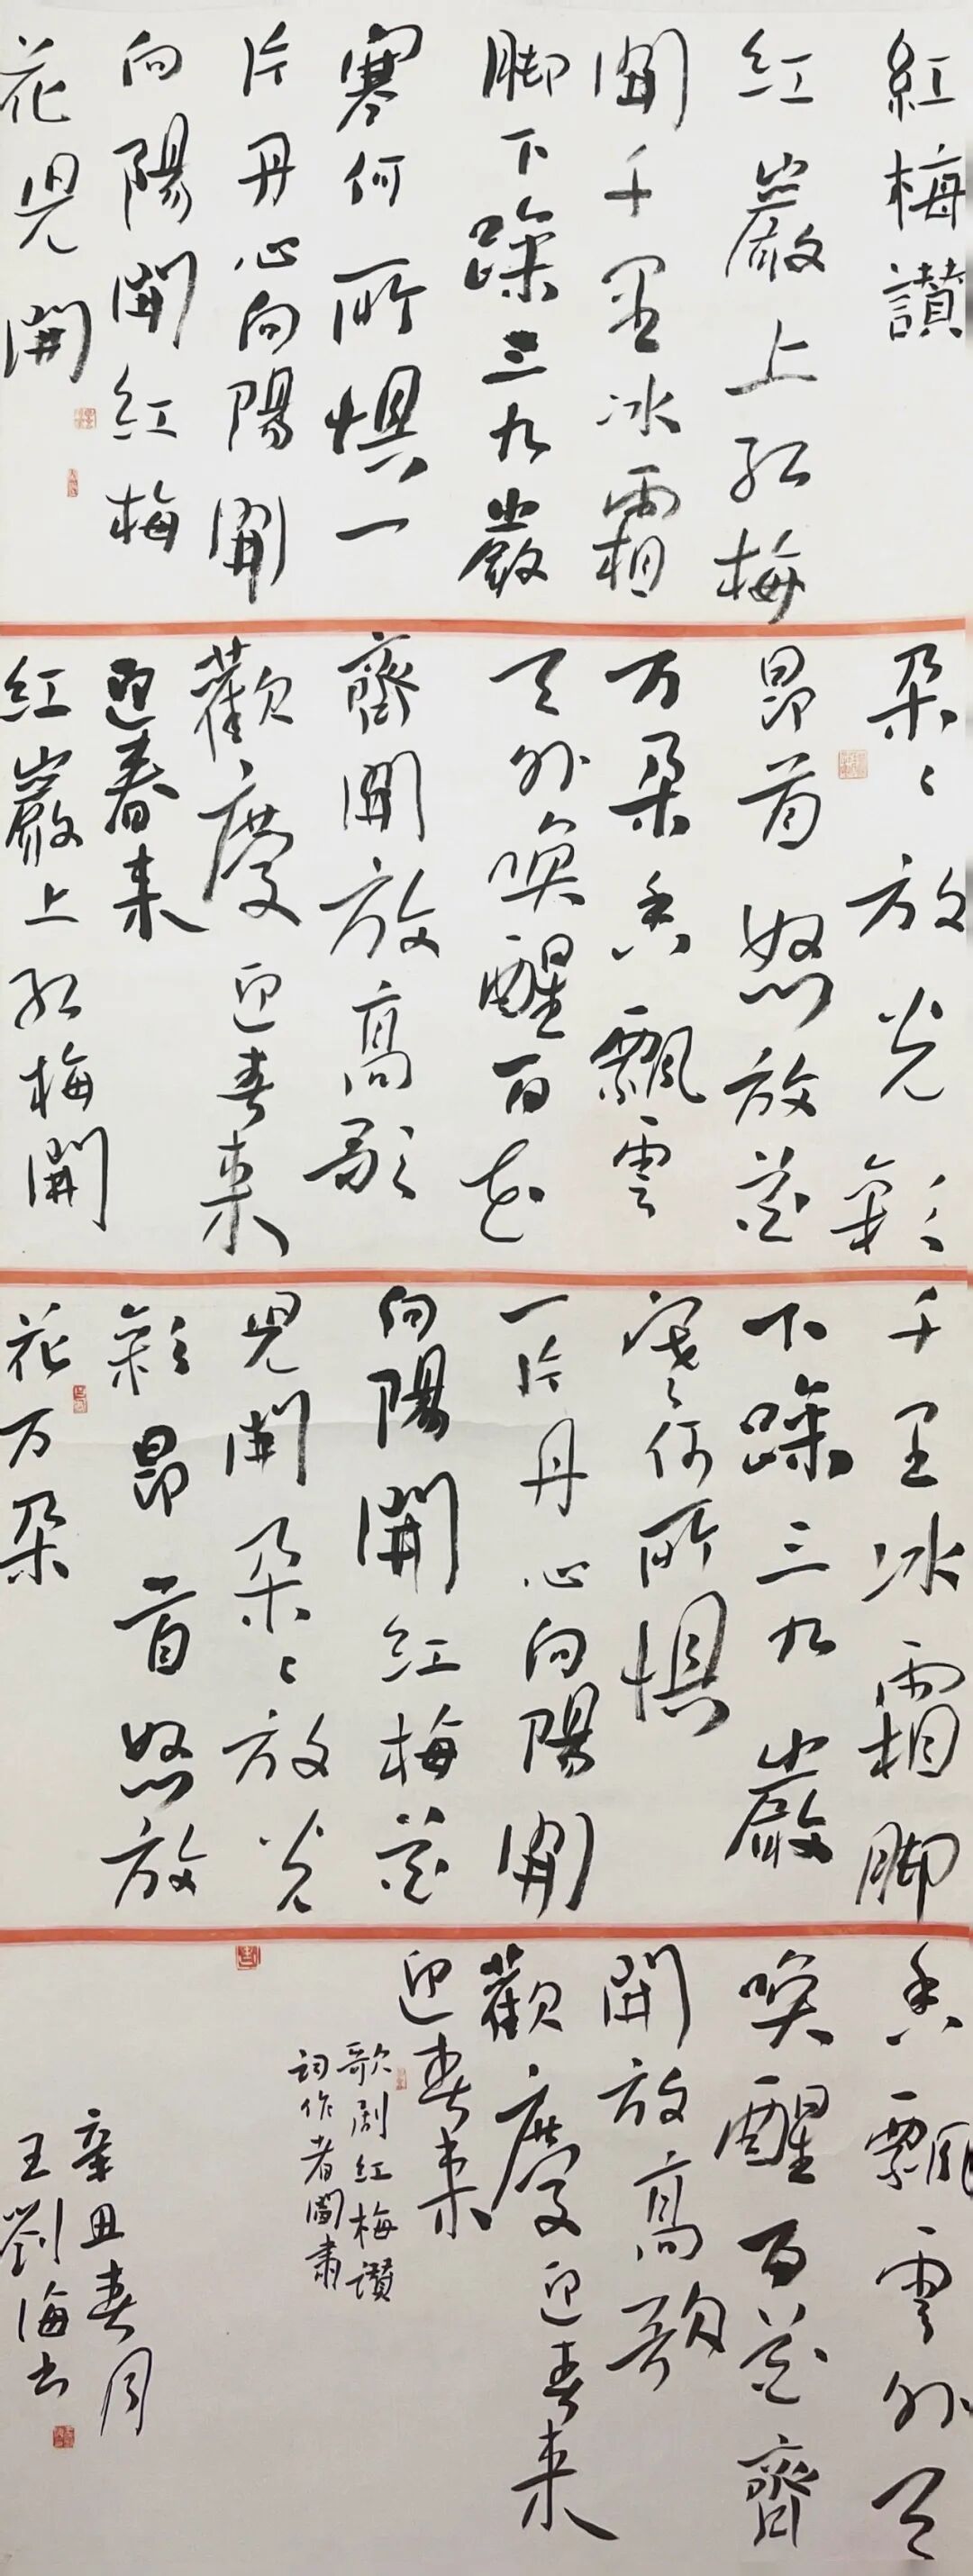 紅梅讚
红巖上红梅
開千里冰霜
脚下踩三九嚴
寒何所惧一
片丹心向陽開
向陽開红梅
花児開
朵〻放光彩
昂首怒放花
万朵香飘雲
天外唤醒百花
齊開放高歌
歡慶迎春来
迎春来
红巖上红梅開
千里冰霜脚
下踩三九嚴
寒何所惧
一片丹心向陽開
向陽開红梅花
児開朵〻放光
彩昂首怒放
花万朵
香飄雲外天
唤醒百花齊
開放高歌
歡慶迎春来
迎春来
歌剧红梅讚
词作者閻肃
辛丑春月
王劉海书